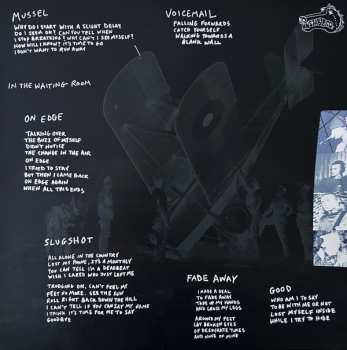 MUSSEL
WHY DO I START WITH A SLIGHT DELAY
DO I SEEM OK? CAN YOU TELL WHEN
I STOP BREATHING? WHY CAN'T I SEE MYSELF?
HOW WILL I KNOW? IT'S TIME TO GO
I DON'T WANT TO RUN AWAY
VOICEMAIL
FALLING FORWARDS
CATCH YOURSELF
WALKING TOWARDS A
BLANK WALL
IN THE WAITING ROOM
ON EDGE
TALKING OVER
THE BUZZ OF MYSELF
DIDN'T NOTICE
THE CHANGE IN THE AIR
ON EDGE
I TRIED TO STAY
BUT THEN I CAME BACK
ON EDGE AGAIN
WHEN ALL THIS ENDS
SLUGSHOT
ALL ALONE IN THE COUNTRY
LOST MY PHONE, IT'S A MONTHLY
YOU CAN TELL I'M A DEADBEAT
WISH I CARED WHO JUST LEFT ME
TRUDGING ON, CAN'T FEEL MY
FEET NO MORE. SEE THE SUN
ROLL RIGHT BACK DOWN THE HILL
I CAN'T TELL IF YOU CAN SAY MY NAME
I THINK IT'S TIME FOR ME TO SAY
GOODBYE
FADE AWAY
I MADE A DEAL
TO FADE AWAY
TIDE UP MY HANDS
AND CROSS MY LEGS
AROUND MY FEET
LAY BROKEN EYES
OF DESPERATE TUNES
AND NONE OF MINE
GOOD
WHO AM I TO SAY
TO BE WITH ME OR NOT
LOST MYSELF INSIDE
WHILE I TRY TO HIDE